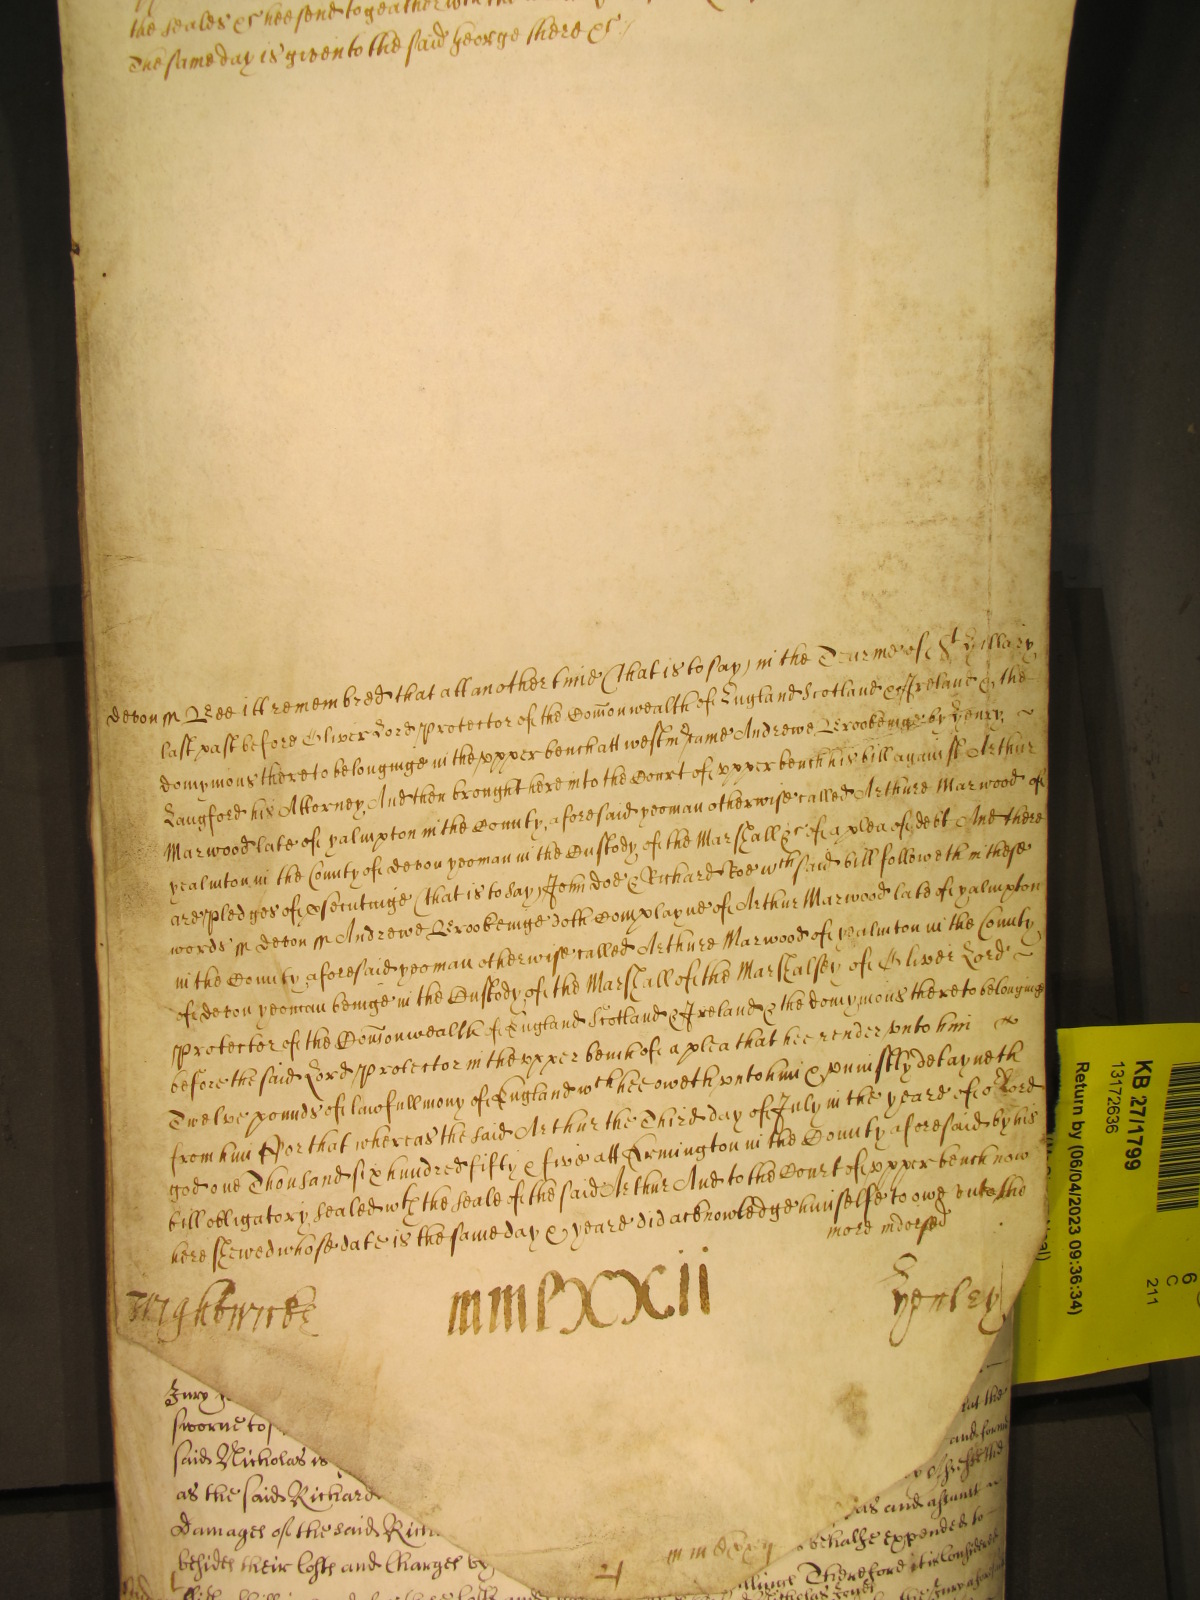 the seales &c hee send togeather with the
The same day is given to the said George there &c /
Devon ss Bee itt remembred that att another time (that is to say) in the Tearme of St Hillary
last past before Oliver Lord Protector of the Comonwealth of England Scotland & Ireland & the
domynions thereto belonginge in the upper bench att westmr came Andrewe Brookeinge by Henry
Langford his Attorney And then brought here into the Court of upper bench his bill against Arthur
Marwood late of yalmpton in the County aforesaid yeoman otherwise called Arthure Marwood of
yealmton in the County of devon yeoman in the Custody of the Marshall &c of a plea of debt And there
are pledges of prosecutinge (that is to say) John Doe & Richard Roe wch said bill followeth in these
words ss devon ss Andrewe Brookeinge doth Complayne of Arthur Marwood late of yalmpton
in the County aforesaid yeoman otherwise called Arthure Marwood of yealmton in the County
of devon yeoman beinge in the Custody of the Marshall of the Marshalsey of Oliver Lord
Protector of the Comonwealth of England Scotland & Ireland & the domynions thereto belonginge
before the said Lord Protector in the upper bench of a plea that hee render unto him
Twelve pounds of lawfull mony of England wch hee oweth unto him & uniustly detayneth
from him For that whereas the said Arthur the Third day of July in the yeare of or Lord
god one Thousand six hundred fifty & five att Ermington in the County aforesaid by his
bill obligatory sealed wth the seale of the said Arthur And to the Court of upper bench now
here shewed whose date is the same day & yeare did acknowledge himselfe to owe unto the
more indorsed
Wightwicke
mmlXXii
Henley
Jury
sworne to
said Nicholas is
as the said Richard
Damages of the said Rich
besides their Costs and Charges by
that the
and forme
as and assault
behalfe expended to
Therefore it is Considered
the Jury afores
KB 27/1799
13172636
Return by (06/04/2023 09:36:34)
6
C
211